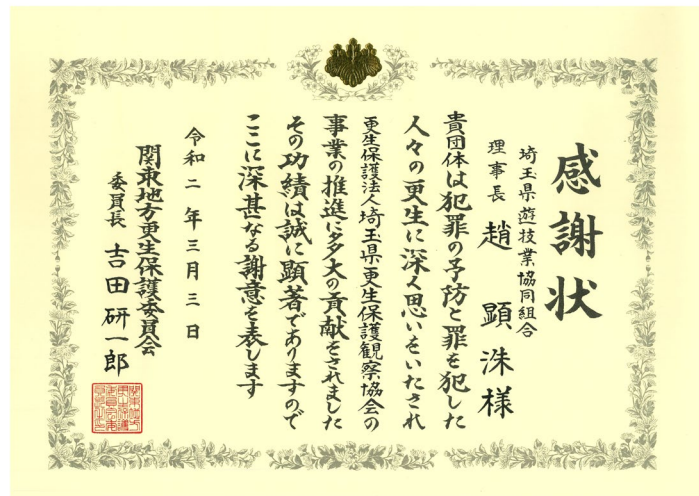 感謝状
埼玉県遊技業協同組合
理事長 趙顕洙様
貴団体は犯罪の予防と罪を犯した
人々の更生に深く思いをいたされ
更生保護法人埼玉県更生保護観察協会の
事業の推進に多大の貢献をされました
その功績は誠に顕著でありますので
ここに深甚なる謝意を表します
令和二年三月三日
関東地方更生保護委員会
委員長 吉田研一郎